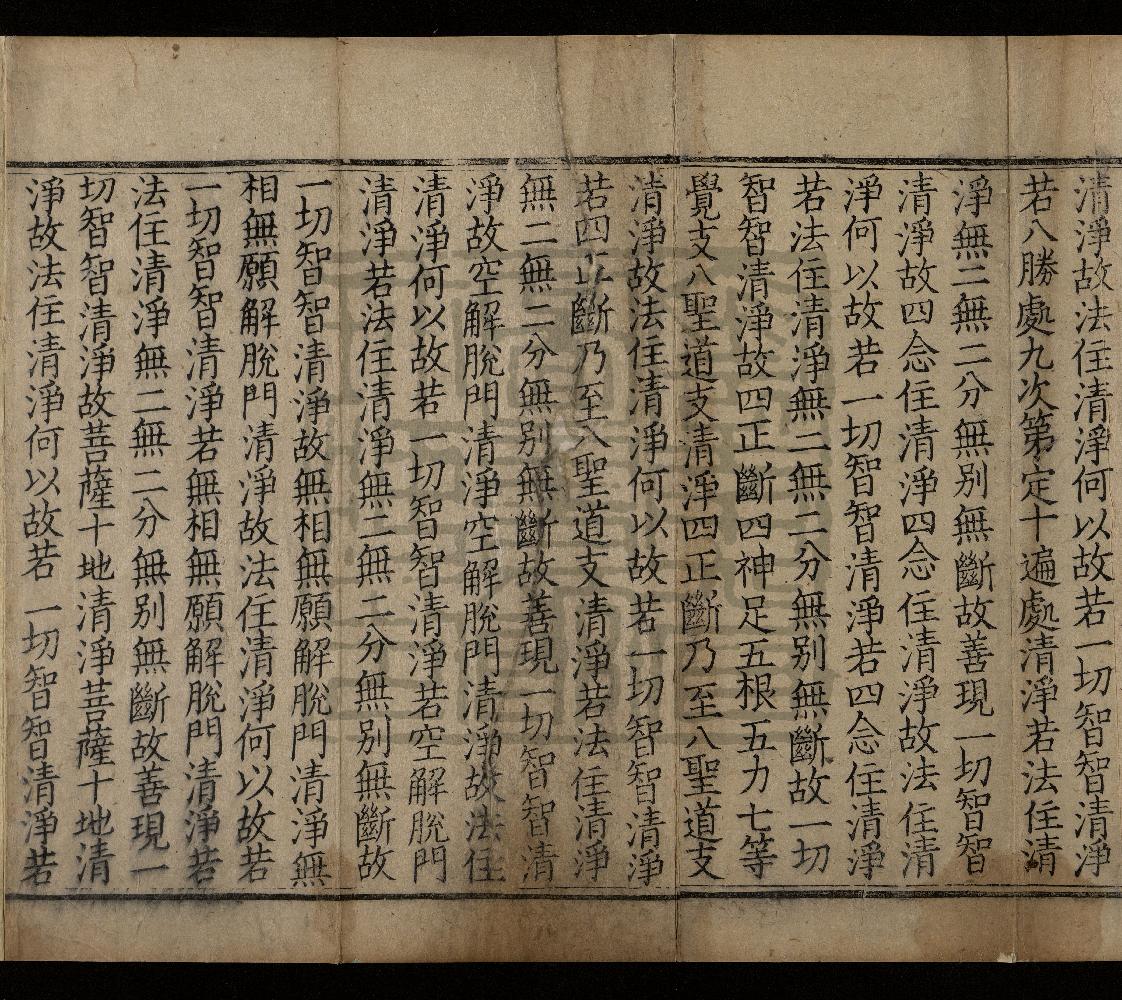 清淨故法住清淨何以故若一切智智清淨
若八勝處九次第定十遍處清淨若法住清
淨無二無二分無別無斷故善現一切智智
清淨故四念住清淨四念住清淨故法住清
淨何以故若一切智智清淨若四念住清淨
若法住清淨無二無二分無別無斷故一切
智智清淨故四正斷四神足五根五力七等
覺支八聖道支清淨四正斷乃至八聖道支
清淨故法住清淨何以故若一切智智清淨
若四正斷乃至八聖道支清淨若法住清淨
無二無二分無別無斷故善現一切智智清
淨故空解脫門清淨空解脫門清淨故法住
清淨何以故若一切智智清淨若空解脫門
清淨若法住清淨無二無二分無別無斷故
一切智智清淨故無相無願解脫門清淨無
相無願解脫門清淨故法住清淨何以故若
一切智智清淨若無相無願解脫門清淨若
法住清淨無二無二分無別無斷故善現一
切智智清淨故菩薩十地清淨菩薩十地清
淨故法住清淨何以故若一切智智清淨若